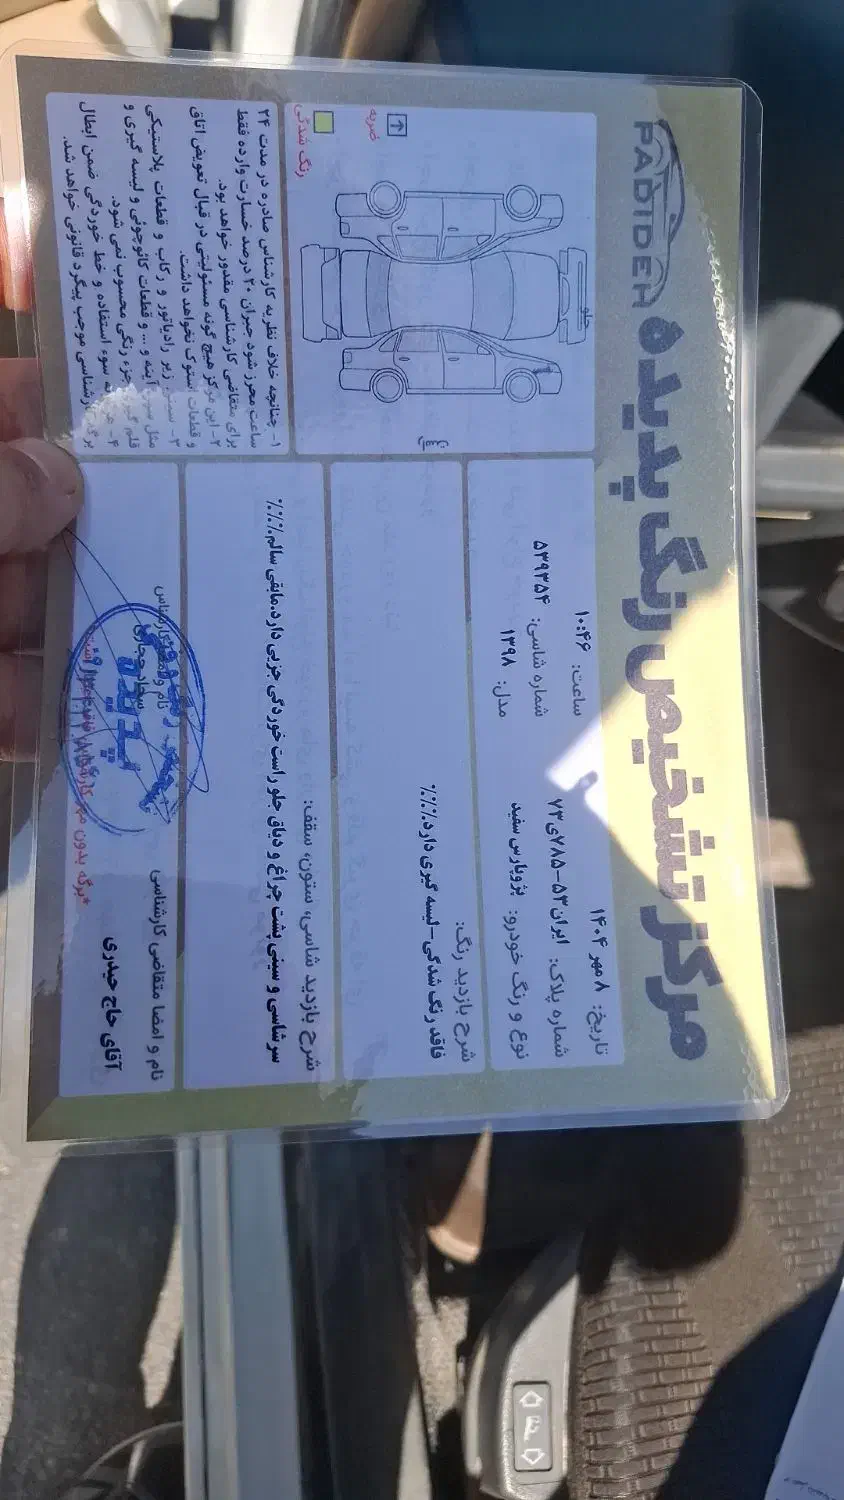 مرکز تشخیص رنگ پدیده
PADIDEH
تاریخ: ۸ مهر ۱۴۰۴
ساعت: ۱۰:۴۶
شماره پلاک: ایران ۵۳-۷۸۵ی۷۳
شماره شاسی: ۵۳۹۳۵۴
نوع و رنگ خودرو: پژوپارس سفید
مدل: ۱۳۹۸
شرح بازدید رنگ:
فاقد رنگ شدگی-لیسه گیری دارد.٪٪٪
شرح بازدید شاسی، ستون، سقف:
سرشاسی و سینی پشت چراغ و دیاق جلو راست خوردگی جزیی دارد.مابقی سالم.٪٪٪
نام و امضا متقاضی کارشناسی
آقای حاج حیدری
*برگه بدون مهر
جلو
ضربه
رنگ شدگی
۱- چنانچه خلاف نظریه کارشناس صادره در مدت ۲۴
ساعت محرز شود جبران ۲۰ درصد خسارت وارده فقط
برای متقاضی کارشناسی مقدور خواهد بود.
۲- این مرکز هیچ گونه مسئولیتی در قبال تعویض اتاق
و قطعات استوک نخواهد داشت.
زیر رادیاتور و رکاب و قطعات پلاستیکی
آینه و ... و قطعات کائوچوئی و لیسه گیری و
رنگی محسوب نمی شود.
سوء استفاده و خط خوردگی ضمن ابطال
موجب پیگرد قانونی خواهد شد.